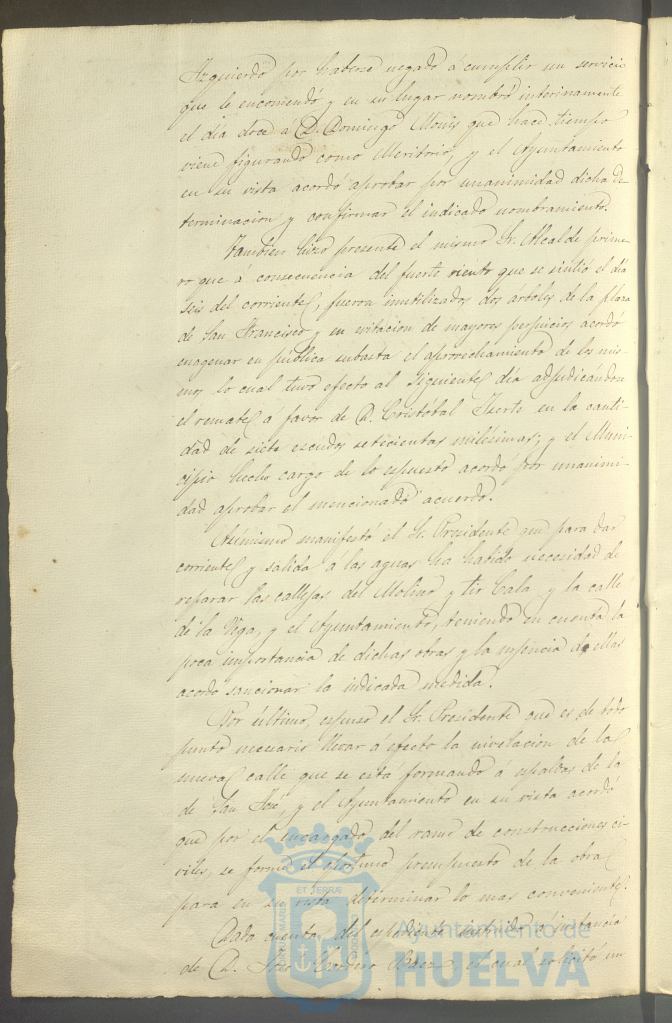 Izquierdo por haberse negado á cumplir un servicio
que le encomendó y en su lugar nombró interinamente
el dia doce á D. Domingo Monís que hace tiempo
viene figurando como Meritorio, y el Ayuntamiento
en su vista acordó aprobar por unanimidad dicha de
terminacion y confirmar el indicado nombramiento.
Tambien hizo presente el mismo Sr. Alcalde prime-
ro que á consecuencia del fuerte viento que se sintió el dia
seis del corriente, fueron inutilizados dos árboles de la plaza
de San Francisco y en evitacion de mayores perjuicios acordó
enagenar en pública subasta el aprovechamiento de los mis-
mos lo cual tuvo efecto al siguiente dia adjudicándose
el remate á favor de D. Cristóbal en la canti-
dad de siete escudos setecientas milésimas; y el Muni-
cipio hecho cargo de lo espuesto acordó por unanimi-
dad aprobar el mencionado acuerdo.
Asimismo manifestó el Sr. Presidente que para dar
corriente y salida á las aguas ha habido necesidad de
reparar las callejas del Molino y tio Cala y la calle
de la Vega, y el Ayuntamiento, teniendo en cuenta la
poca importancia de dichas obras y la urgencia de ellas
acordó sancionar la indicada medida.
Por último, espuso el Sr. Presidente que es de todo
punto necesario llevar á efecto la nivelacion de la
nueva calle que se está formando á espaldas de la
de San José, y el Ayuntamiento en su vista acordó
que por el encargado del ramo de construcciones ci-
viles, se forme el oportuno presupuesto de la obra
para en su vista determinar lo mas conveniente.
Dada cuenta del espediente instruido á instancia
de D. José Cordero Baez el cual solicitó un
ET TERRÆ
Ayuntamiento de
HUELVA